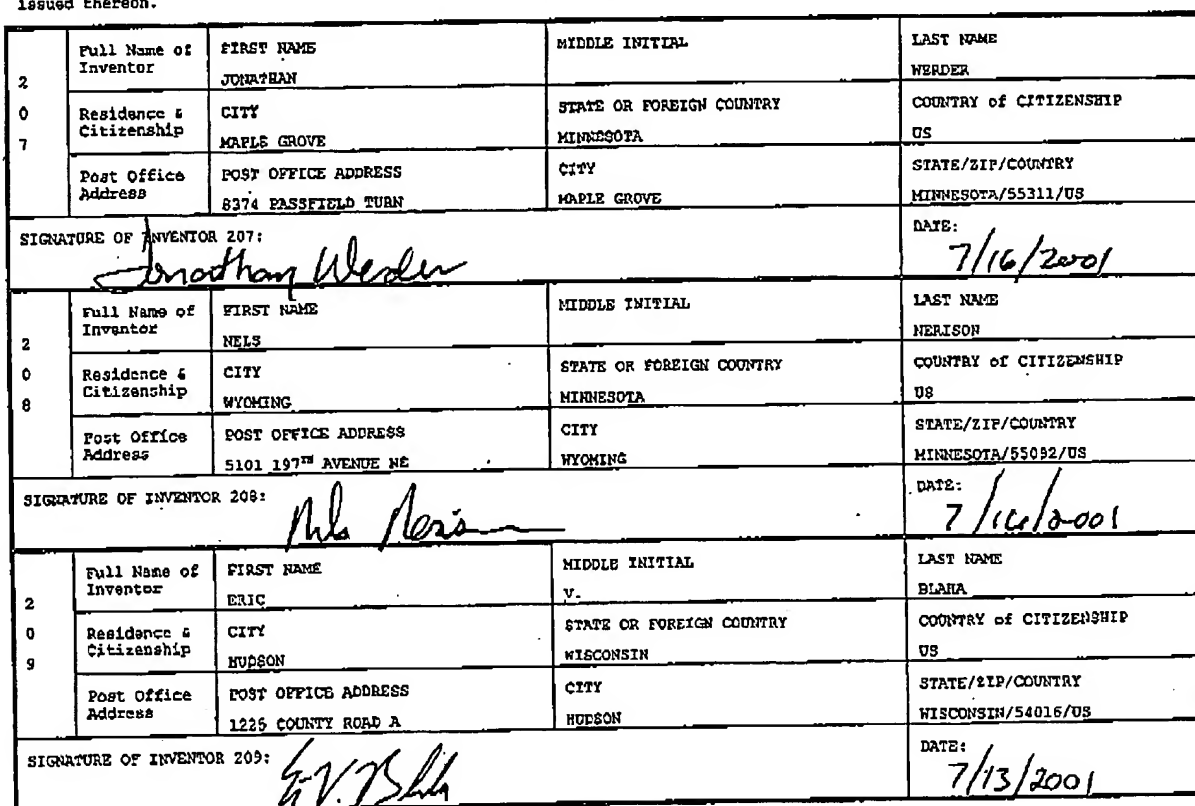 issued thereon.
2 0 7
Full Name of Inventor
FIRST NAME
JONATHAN
MIDDLE INITIAL
LAST NAME
WERDER
Residence & Citizenship
CITY
MAPLE GROVE
STATE OR FOREIGN COUNTRY
MINNESOTA
COUNTRY of CITIZENSHIP
US
Post Office Address
POST OFFICE ADDRESS
8374 PASSFIELD TURN
CITY
MAPLE GROVE
STATE/ZIP/COUNTRY
MINNESOTA/55311/US
SIGNATURE OF INVENTOR 207:
Jonathan Werder
DATE:
7/16/2001
2 0 8
Full Name of Inventor
FIRST NAME
NELS
MIDDLE INITIAL
LAST NAME
NERISON
Residence & Citizenship
CITY
WYOMING
STATE OR FOREIGN COUNTRY
MINNESOTA
COUNTRY of CITIZENSHIP
US
Post Office Address
POST OFFICE ADDRESS
5101 197TH AVENUE NE
CITY
WYOMING
STATE/ZIP/COUNTRY
MINNESOTA/55092/US
SIGNATURE OF INVENTOR 208:
DATE:
7/16/2001
2 0 9
Full Name of Inventor
FIRST NAME
ERIC
MIDDLE INITIAL
V.
LAST NAME
BLAHA
Residence & Citizenship
CITY
HUDSON
STATE OR FOREIGN COUNTRY
WISCONSIN
COUNTRY of CITIZENSHIP
US
Post Office Address
POST OFFICE ADDRESS
1225 COUNTY ROAD A
CITY
HUDSON
STATE/ZIP/COUNTRY
WISCONSIN/54016/US
SIGNATURE OF INVENTOR 209:
DATE:
7/13/2001